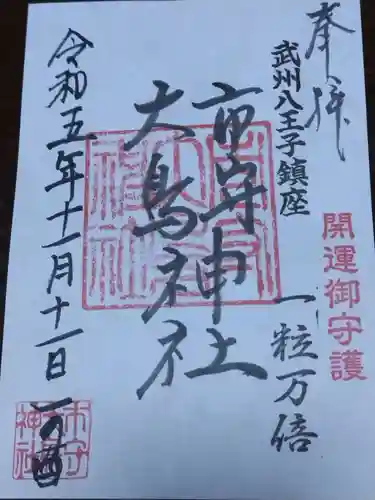 奉拝
武州八王子鎮座
一粒万倍
開運御守護
市守神社
大鳥神社
令和五年十一月十一日 一の酉
市守
神社